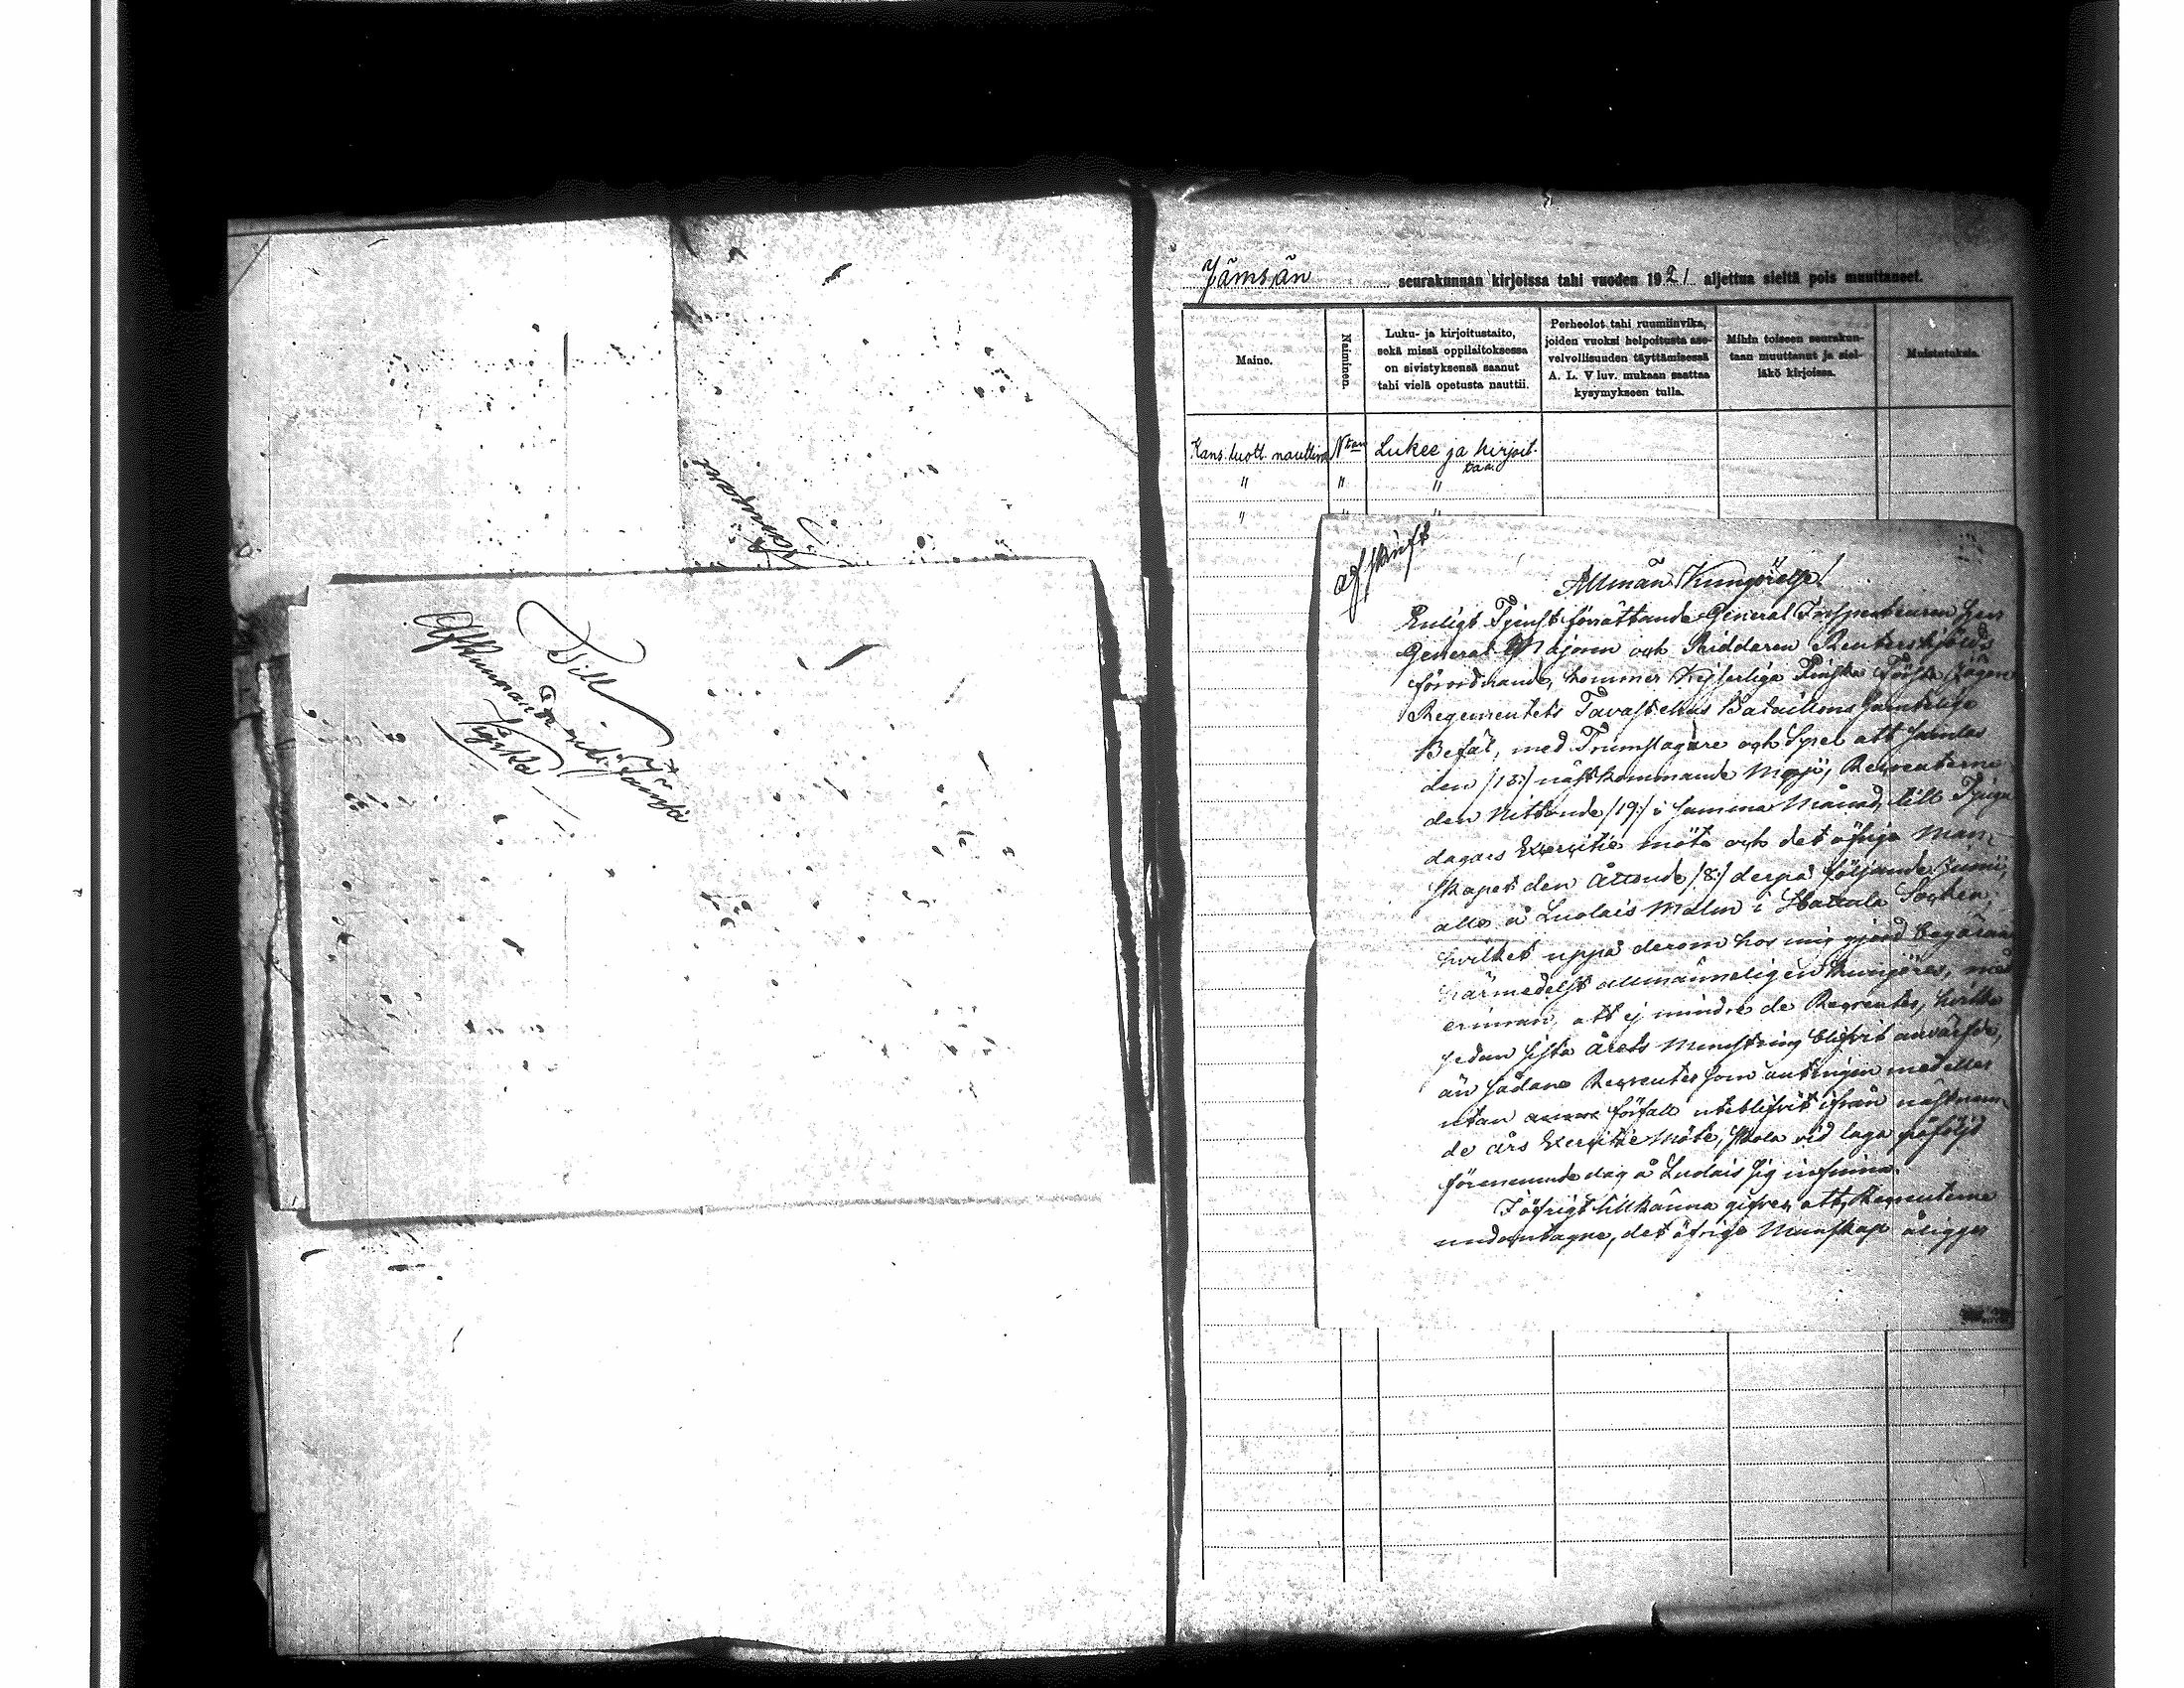 Till
Afkunnande uti Jämsä
Kyrka
Jämsän seurakunnan kirjoissa tahi vuoden 1921 aljettua sieltä pois muuttaneet.
Maine.
Naiminen.
Luku- ja kirjoitustaito,
sekä missä oppilaitoksessa
on sivistyksensä saanut
tahi vielä opetusta nauttii.
Perheolot tahi ruumiinvika,
joiden vuoksi helpoitusta ase-
velvollisuuden täyttämisessä
A. L. V luv. mukaan saattaa
kysymykseen tulla.
Mihin toiseen seurakun-
taan muuttanut ja siel-
läkö kirjoissa.
Muistutuksia.
Kans. luott. nauttiva Ntan Lukee ja kirjoit-
taa.
" " "
" " "
Afskrift
Allmän Kungörelse!
Enligt Tjenstförrättande General Inspecteuren Herr
General Majoren och Riddaren Reuterskjölds
förordnande, kommer Kejserliga Finska Första Jägare
Regementets Tavastehus Bataillons samtelige
Befäl, med Trumslagare och Spel att samlas
den /18:/ nästkommande Maji, Recreuterne
den Nittonde /19:/ i samma Månad, till Tjugu
dagars Exercitie möte och det öfrige Man-
skapet den Åttonde /8:/ derpå följande Junii,
alla å Luolais Malm i Hattula Sochen,
hvilket uppå derom hos mig gjord begäran
härmedelst allmänneligen kungöres, med
erinran, att ej mindre de Recreuter, hvilka
sedan sista årets Munstring blifvit anvärfde,
än sådane Recreuter som antingen med eller
utan förfall uteblifvit ifrån nästnam-
de års Exercitie Möte, skola vid laga påföljd
förenämnde dag å Luolais sig infinna.
I öfrigt tillkänna gifves, att, Recreuterne
undantagne, det öfrige Manskap åligger